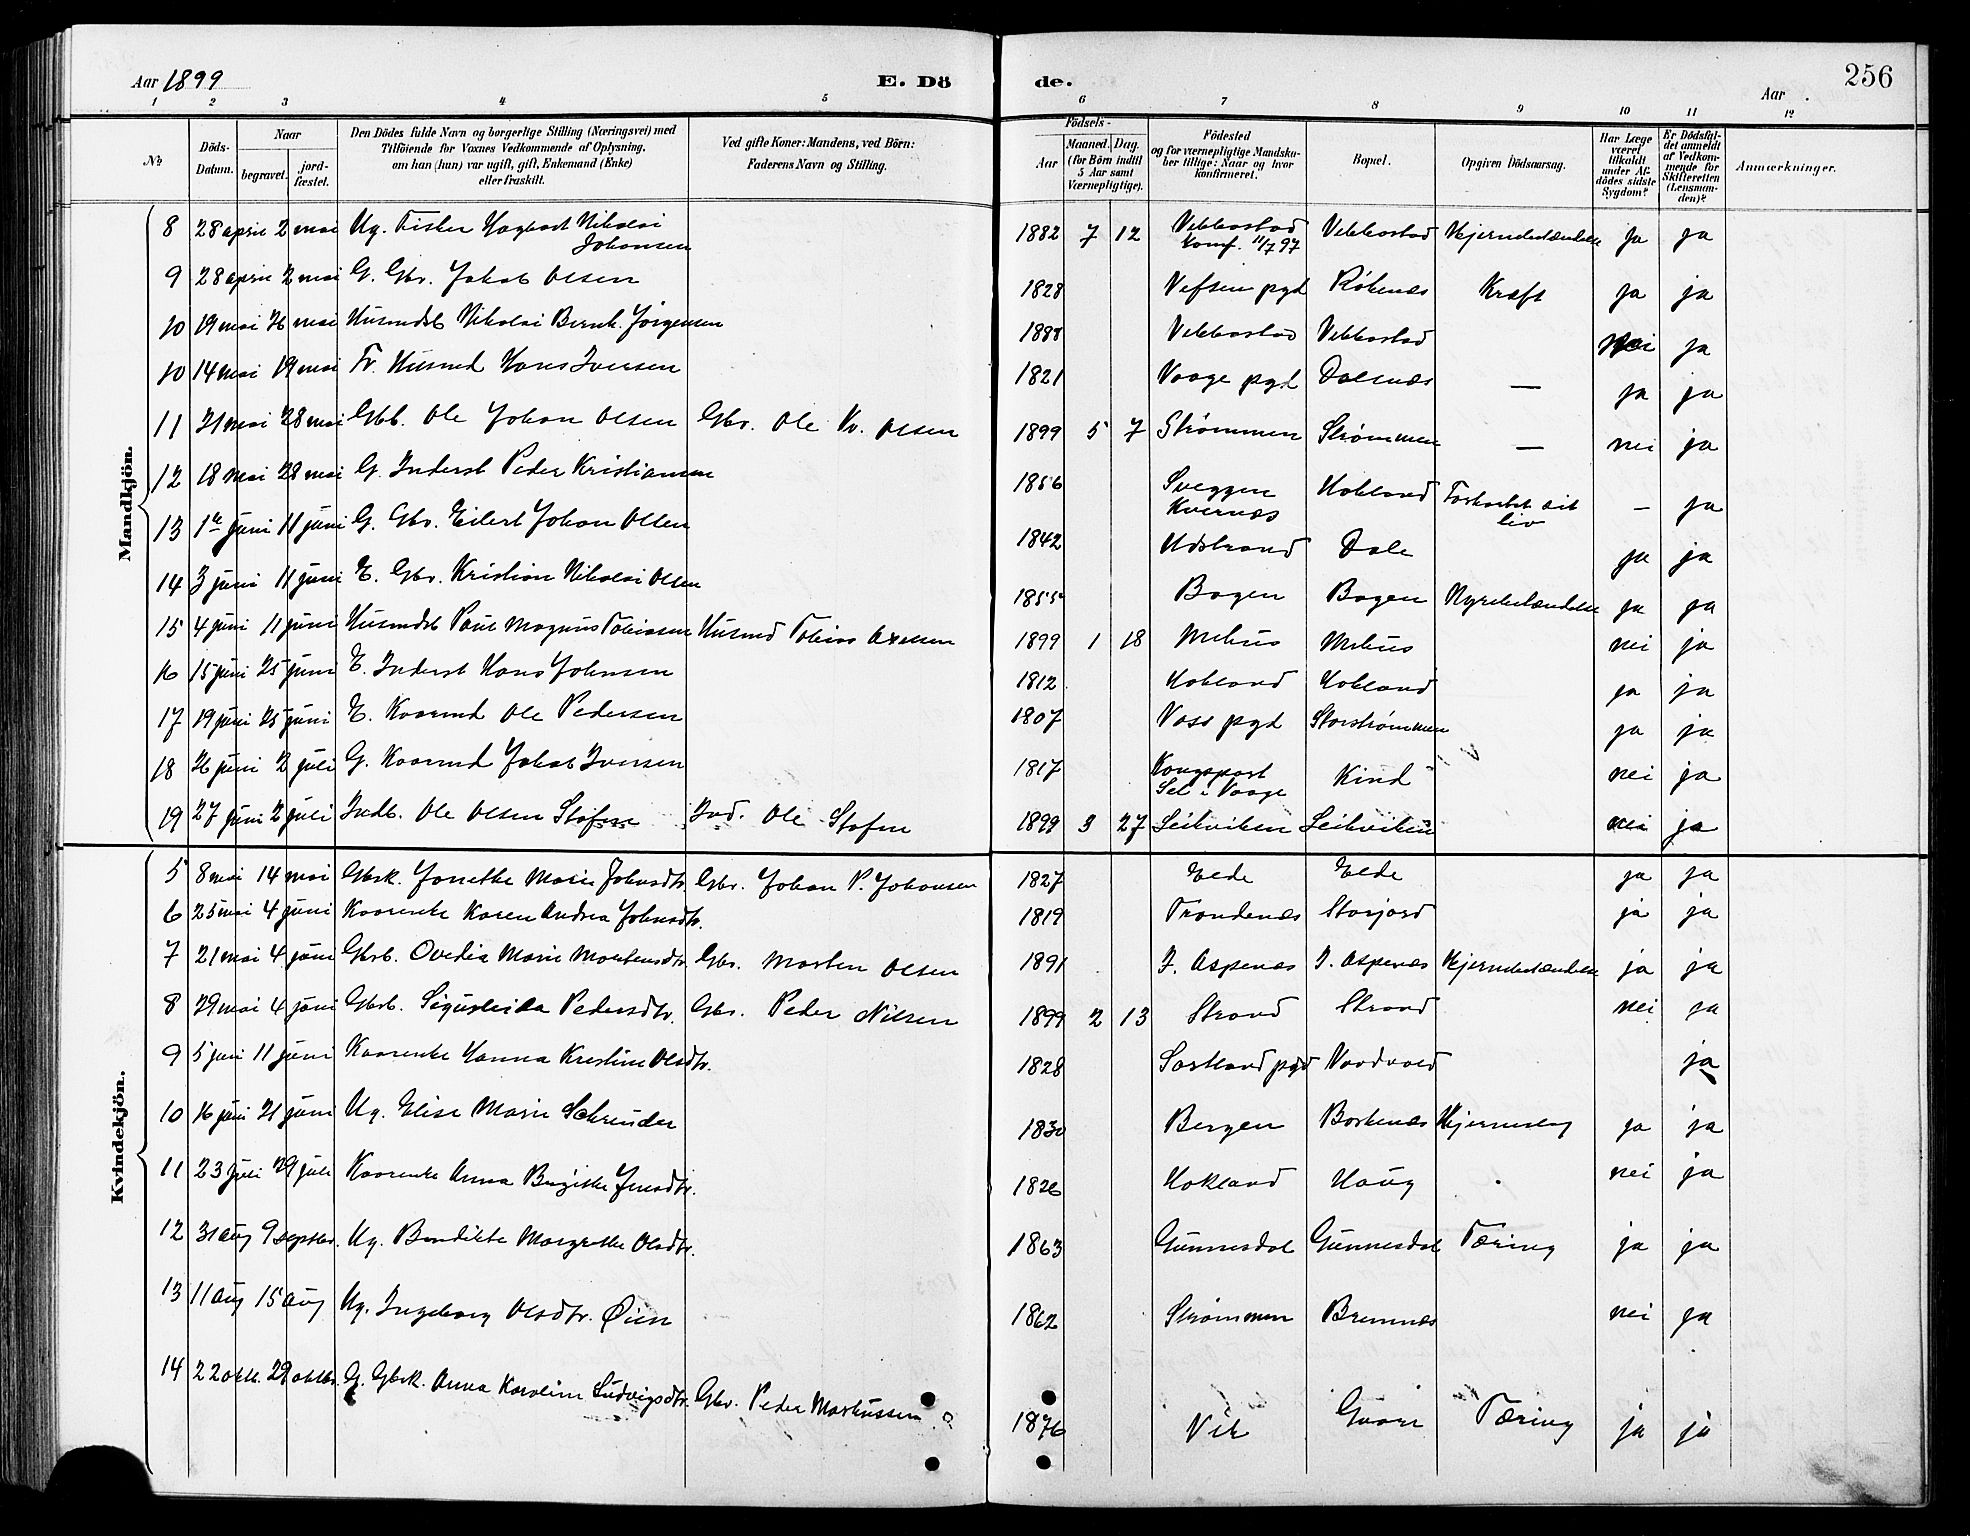 Aar 1899
E. Dö
de.
Aar .
256
1 2 3 4 5 6 7 8 9 10 11 12
No
Döds-Datum.
Naar
begravet.
jord-fæstet.
Den Dödes fulde Navn og borgerlige Stilling (Næringsvei) med
Tilföiende for Voxnes Vedkommende af Oplysning,
om han (hun) var ugift, gift, Enkemand (Enke)
eller fraskilt.
Ved gifte Koner: Mandens, ved Börn:
Faderens Navn og Stilling.
Födsels-
Aar
Maaned. Dag.
(for Börn indtil
5 Aar samt
Værnepligtige).
Födested
og for værnepligtige Mandska-
ber tillige: Naar og hvor
konfirmeret.
Bopæl.
Opgiven Dödsaarsag.
Har Læge
været
tilkaldt
under Af-
dödes sidste
Sygdom?
Er Dödsfal-
det anmeldt
af Vedkom-
mende for
Skifteretten
(Lensman-
den)?
Anmærkninger.
Mandkjön.
8 28 april 2 mai Ug. Fisker Hagbart Nikolai Johansen 1882 7 12 Vebbostad konf. 11/7 97 Vebbostad Hjernebetændelse ja ja
9 28 april 2 mai G. Gbr. Jakob Olsen 1828 Vefsen pgd Rökenes Kræft ja ja
10 19 mai 26 mai Husmdsb Nikolai Bernh. Jörgensen 1888 Vebbostad Vebbostad nei ja
10 14 mai 19 mai Fr. Husmd Hans Iversen 1821 Vaage pgd Dalenæs — ja ja
11 21 mai 28 mai Gbb. Ole Johan Olsen Gbr. Ole Kr. Olsen 1899 5 7 Strømmen Strømmen — nei ja
12 18 mai 28 mai G. Inderst Peder Kristiansen 1856 Sveggen Kvernæs Hokland Forkortet sit liv — ja
13 1te juni 11 juni G. Gbr. Eilert Johan Olsen 1842 Udstrand Dale ja ja
14 3 juni 11 juni E. Gbr. Kristian Nikolai Olsen 1855 Bogen Bogen Nyrebetændelse ja ja
15 4 juni 11 juni Husmdsb Paul Magnus Tobiassen Husmd Tobias Axelsen 1899 1 18 Melhus Melhus nei ja
16 15 juni 25 juni E. Inderst Hans Johnsen 1812 Hokland Hokland ja ja
17 19 juni 25 juni E. Kaarmd Ole Pedersen 1807 Voss pgd Storstrømmen ja ja
18 26 juni 2 juli G. Kaarmd Jakob Iversen 1817 Kongsport Sel i Vaage Kind nei ja
19 27 juni 2 juli Indb. Ole Olsen Stofm Ind. Ole Stofm 1899 3 27 Leikviken Leikviken nei ja
Kvindekjön.
5 8 mai 14 mai Gbrk. Janethe Marie Johnsdtr. Gbr. Johan P. Johansen 1827 Elde Elde ja ja
6 25 mai 4 juni Kaarenke Karen Andrea Johnsdtr. 1819 Trondenæs Storjord ja ja
7 21 mai 4 juni Gbrb. Ovedia Marie Mortensdtr. Gbr. Morten Olsen 1891 I. Aspenæs I. Aspenæs Hjernebetændelse ja ja
8 29 mai 4 juni Gbrb. Pedersdtr. Gbr. Peder Nilsen 1899 2 13 Strand Strand nei ja
9 5 juni 11 juni Kaarenke Hanna Kristine Olsdtr. 1828 Sortland pgd Vardvold ja
10 16 juni 21 juni Ug. Elise Marie Schreuder 1830 Bergen Borkenæs Hjerneslag ja ja
11 23 juli 29 juli Kaarenke Anna Birgithe Jensdtr. 1826 Hokland Haug nei ja
12 31 aug 9 septbr. Ug. Bendikte Margrethe Olsdtr. 1863 Gunnesdal Gunnesdal Tæring ja ja
13 11 aug 15 aug Ug. Ingeborg Olsdtr. Øien 1862 Strømmen Bremnæs nei ja
14 22 okt. 29 oktbr. G. Gbrk. Anna Karoline Ludvigsdtr. Gbr. Peder Markussen 1876 Vik Gaare Tæring ja ja